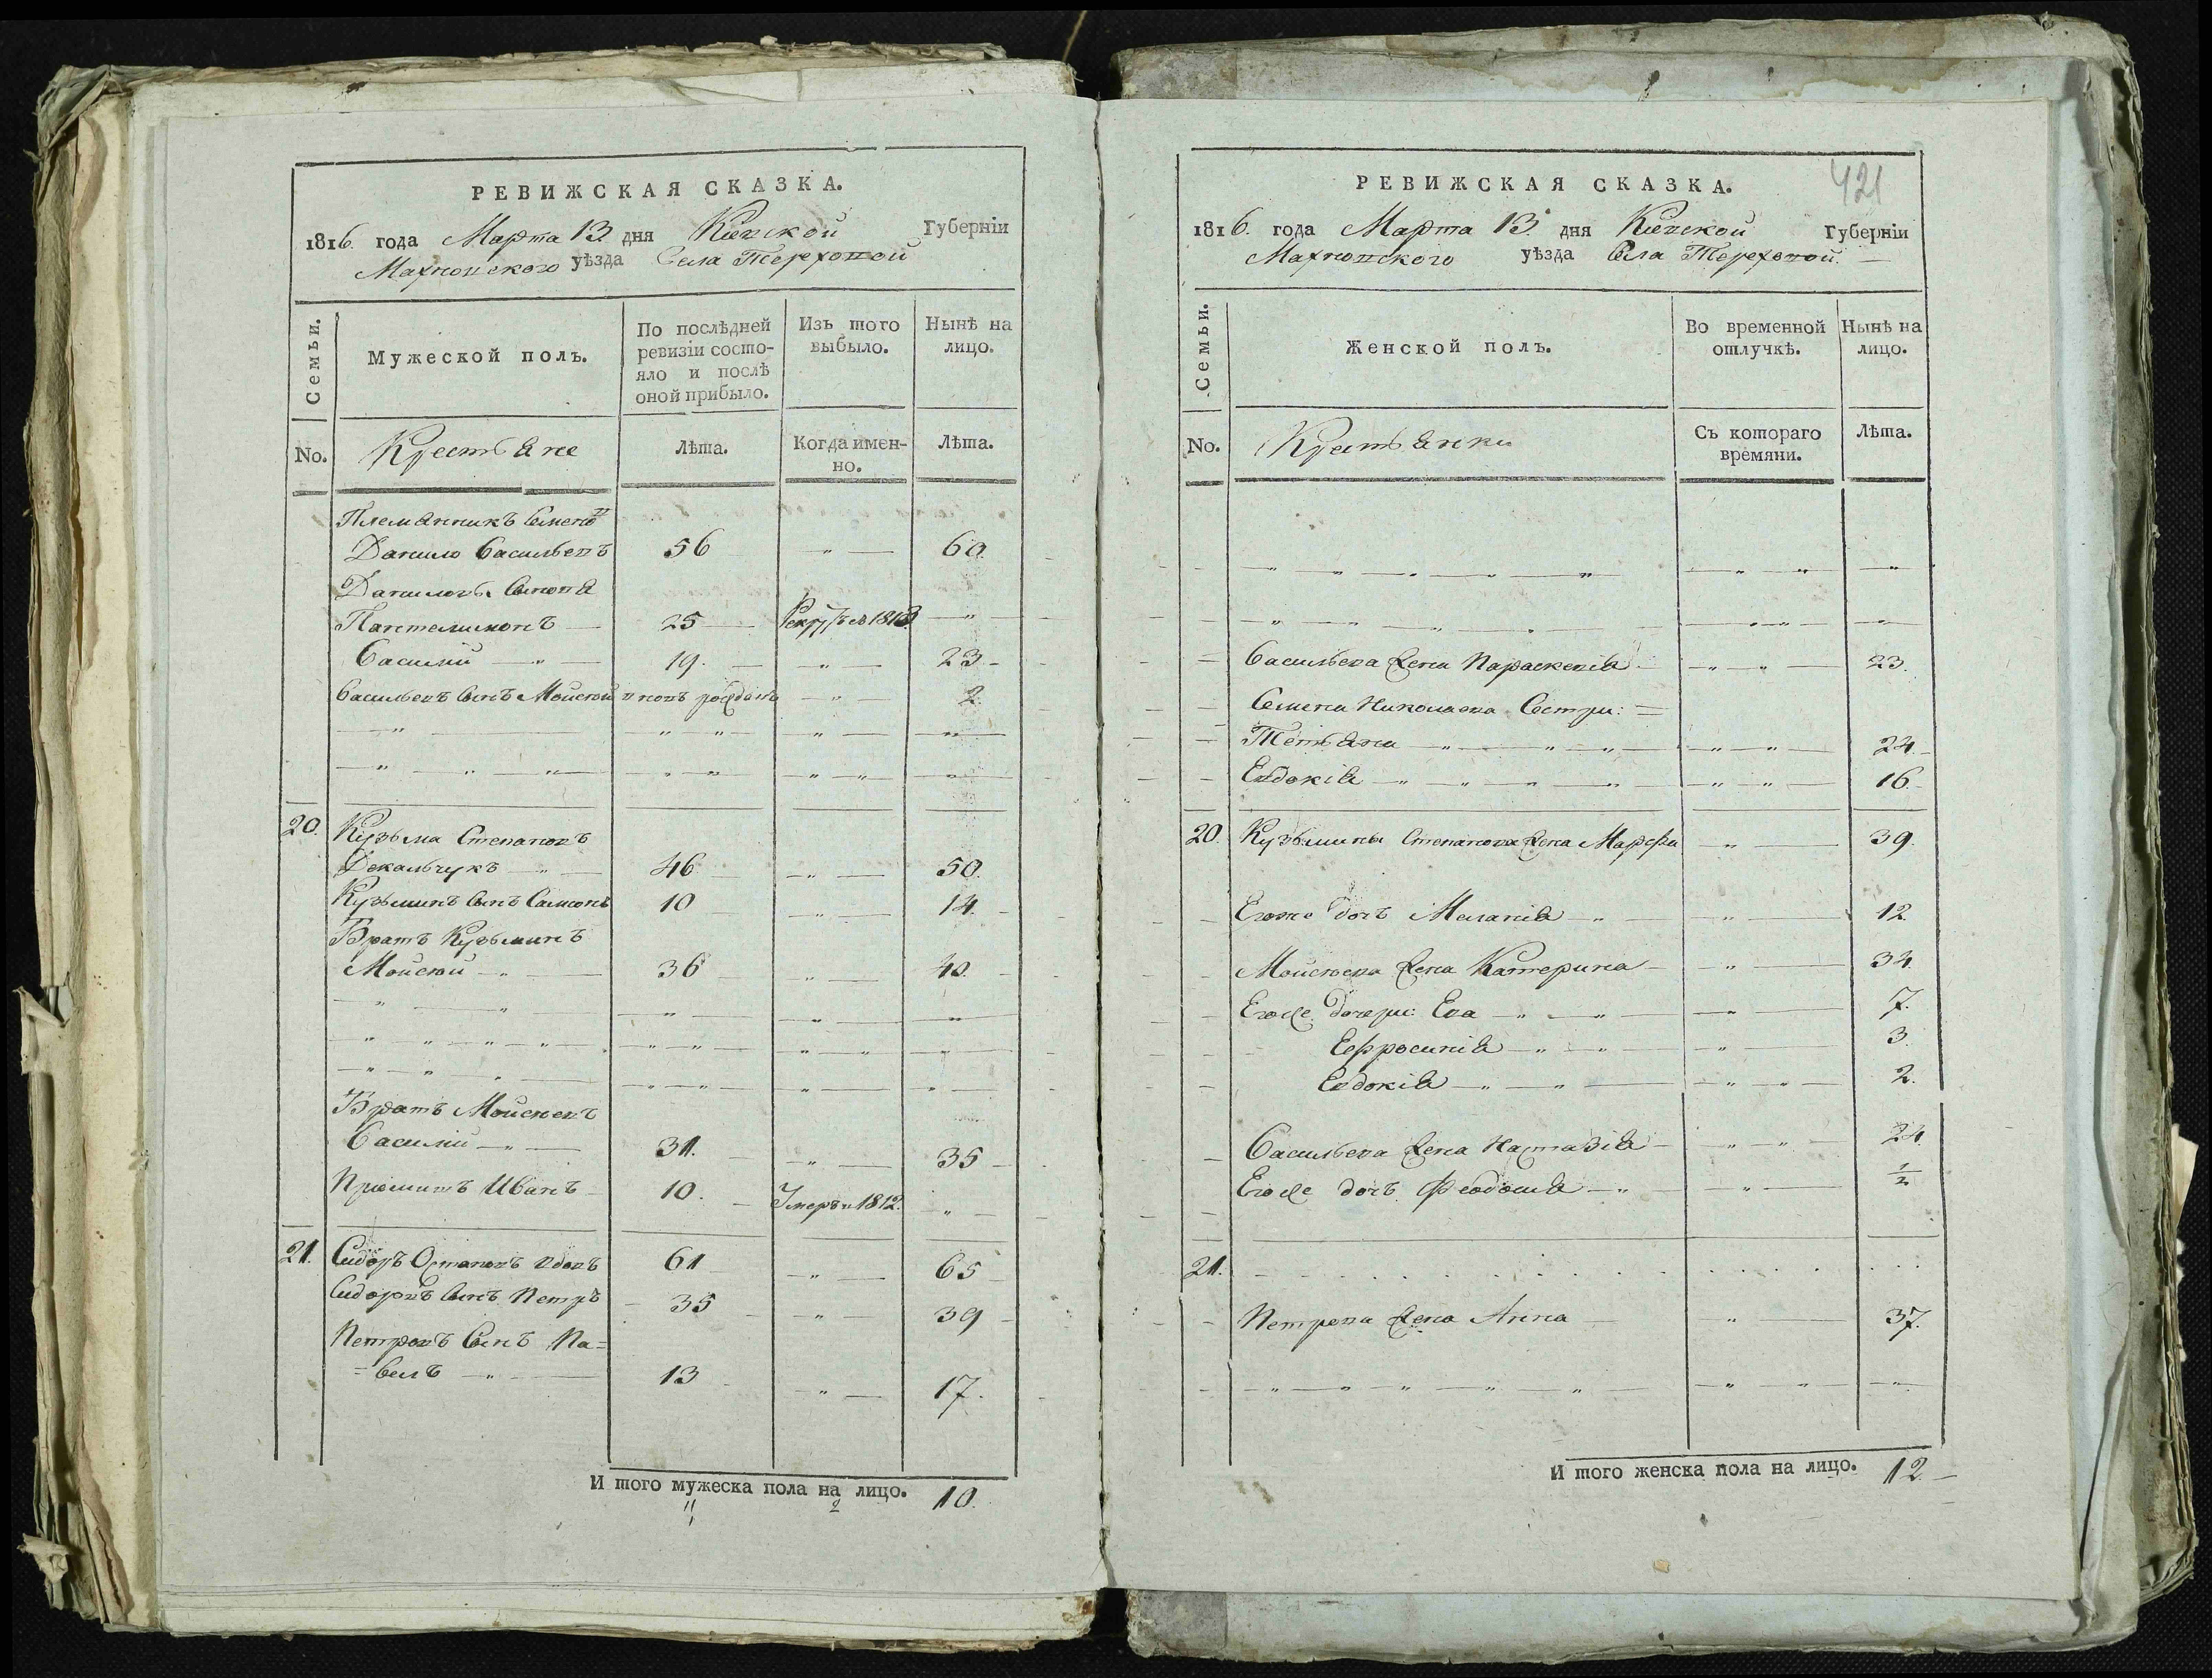 РЕВИЖСКАЯ СКАЗКА.
1816. года Марта 13 дня Киевской Губерніи
Махновского уѣзда Села Тереховой
Семьи.
Мужеской полъ.
По послѣдней ревизіи состояло и послѣ оной прибыло.
Изъ того выбыло.
Нынѣ на лицо.
No.
Крестьяне
Лѣта.
Когда именно.
Лѣта.
Племянникъ Семенов
Данило Васильевъ 56 " 60.
Даниловы Сыновя
Пантелимонъ 25 Рекрутъ в 1813 "
Василий " 19. " 23
Васильевъ Сынъ Мойсей вновь рожданъ " 2
" " " " "
" " " " " " " "
20. Кузьма Степановъ
Декальчукъ " 46 " 50.
Кузьминъ Сынъ Самсонъ 10 " 14.
Братъ Кузьминъ
Мойсей " 36 " 40.
" " " " "
" " " " " " " " "
" " " " " " "
Братъ Мойсеевъ
Василий " 31. " 35
Приймитъ Иванъ 10. Умеръ в 1812. "
21. Сидоръ Остаповъ вдовъ 61 " 65
Сидоровъ Сынъ Петръ 35 " 39
Петровъ Сынъ Па=
=велъ " 13 " 17.
И того мужеска пола на лицо. 10.
421
РЕВИЖСКАЯ СКАЗКА.
1816. года Марта 13. дня Киевской Губерніи
Махновского уѣзда Села Терехової.
Семьи.
Женской полъ.
Во временной отлучкѣ.
Нынѣ на лицо.
No.
Крестьянки
Съ котораго времяни.
Лѣта.
" " " " " " " "
" " " " " " "
Васильева жена Параскевія " " 23.
Семена Николаева Сестри:
Тетьяна " " " " " 24.
Евдокія " " " " " " 16.
20. Кузьмины Степанова жена Марфа " 39.
Егоже дочъ Меланія " " 12
Мойсеева жена Катерина " 34.
Егоже дочери: Ева " " " 7.
Ефросинія " " " 3.
Евдокія " " " " 2.
Васильева жена Настазія " " 24.
Егоже дочъ Феодосия " " 1/2
21.
Петрова жена Анна " 37.
" " " " " " " "
И того женска пола на лицо. 12.